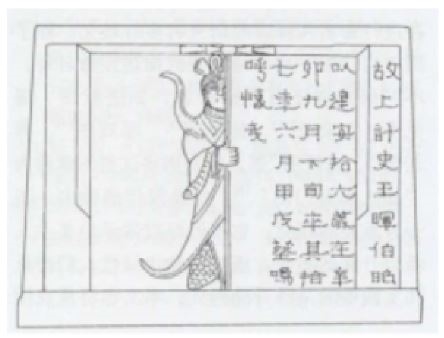 故上計史王暉伯昭
以建安拾六歲在辛
卯九月下旬卒其拾
七年六月甲戌葬嗚
呼懷哉